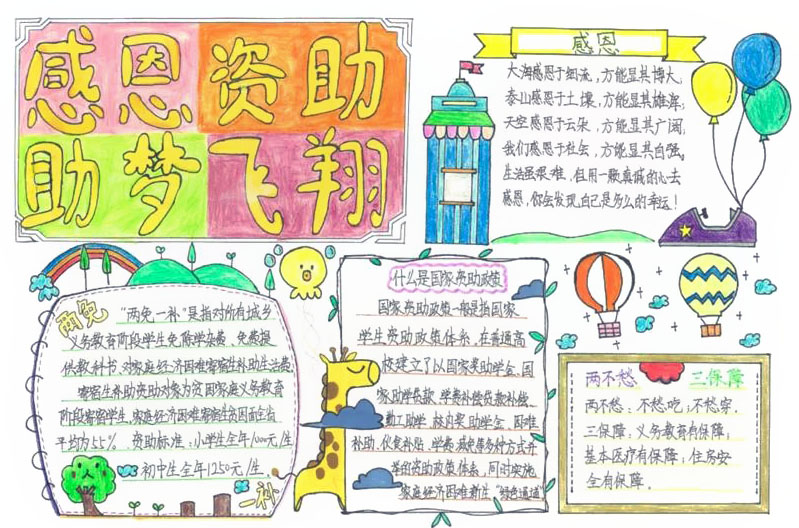 感恩资助
助梦飞翔
感恩
大海感恩于细流，方能显其博大，
泰山感恩于土壤，方能显其雄浑；
天空感恩于云朵，方能显其广阔，
我们感恩于社会，方能显其自强。
生活虽艰难，但用一颗真诚的心去
感恩，你会发现自己是多么的幸运！
两免
"两免一补"是指对所有城乡
义务教育阶段学生免除学杂费、免费提
供教科书，对家庭经济困难寄宿生补助生活费
寄宿生补助资助对象为贫困家庭义务教育
阶段寄宿学生，家庭经济困难寄宿生贫困面全省
平均为55%。资助标准：小学生全年1000元/生
初中生全年1250元/生
一补
什么是国家资助政策
国家资助政策一般是指国家
学生资助政策体系，在普通高
校建立了以国家奖助学金、国
家助学贷款、学费补偿贷款代偿、
勤工助学、校内奖助学金、困难
补助、伙食补贴、学费减免等多种方式并
举的资助政策体系，同时实施
家庭经济困难新生"绿色通道"
两不愁 三保障
两不愁：不愁吃；不愁穿。
三保障：义务教育有保障，
基本医疗有保障，住房安
全有保障。